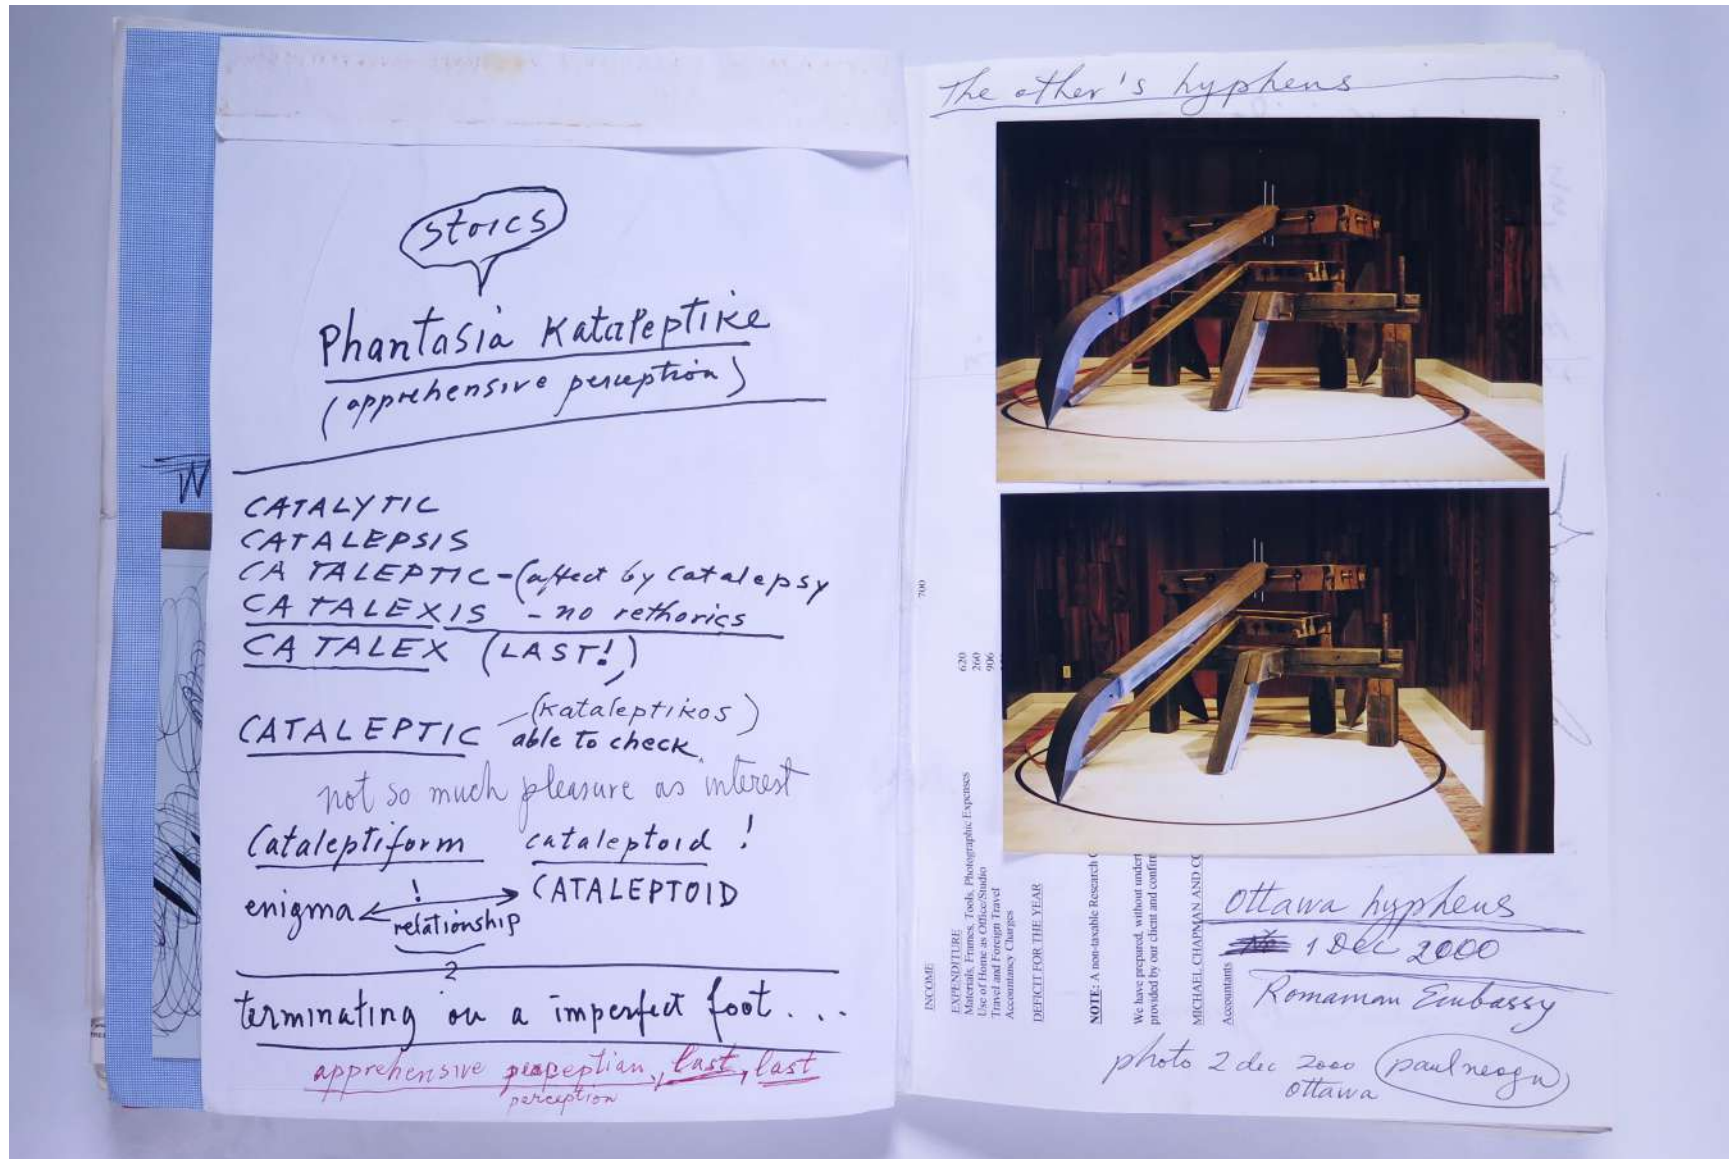 stoics
Phantasia Kataleptike
(apprehensive perception)
CATALYTIC
CATALEPSIS
CATALEPTIC - (affect by catalepsy
CATALEXIS - no rethorics
CATALEX (LAST!)
CATALEPTIC - (Kataleptikos)
able to check
not so much pleasure as interest
Cataleptiform cataleptoid !
! CATALEPTOID
enigma
relationship
2
terminating on a imperfect foot...
apprehensive peapeption, last, last
perception
W
The other's hyphens
700
620
260
906
INCOME
EXPENDITURE
Materials, Frames, Tools, Photographic Expenses
Use of Home as Office/Studio
Travel and Foreign Travel
Accountancy Charges
DEFICIT FOR THE YEAR
NOTE: A non-taxable Research
We have prepared, without
provided by our client and
MICHAEL CHAPMAN AND
Accountants
Ottawa hyphens
1 Dec 2000
Romanian Embassy
photo 2 dec 2000 paul neagu
Ottawa